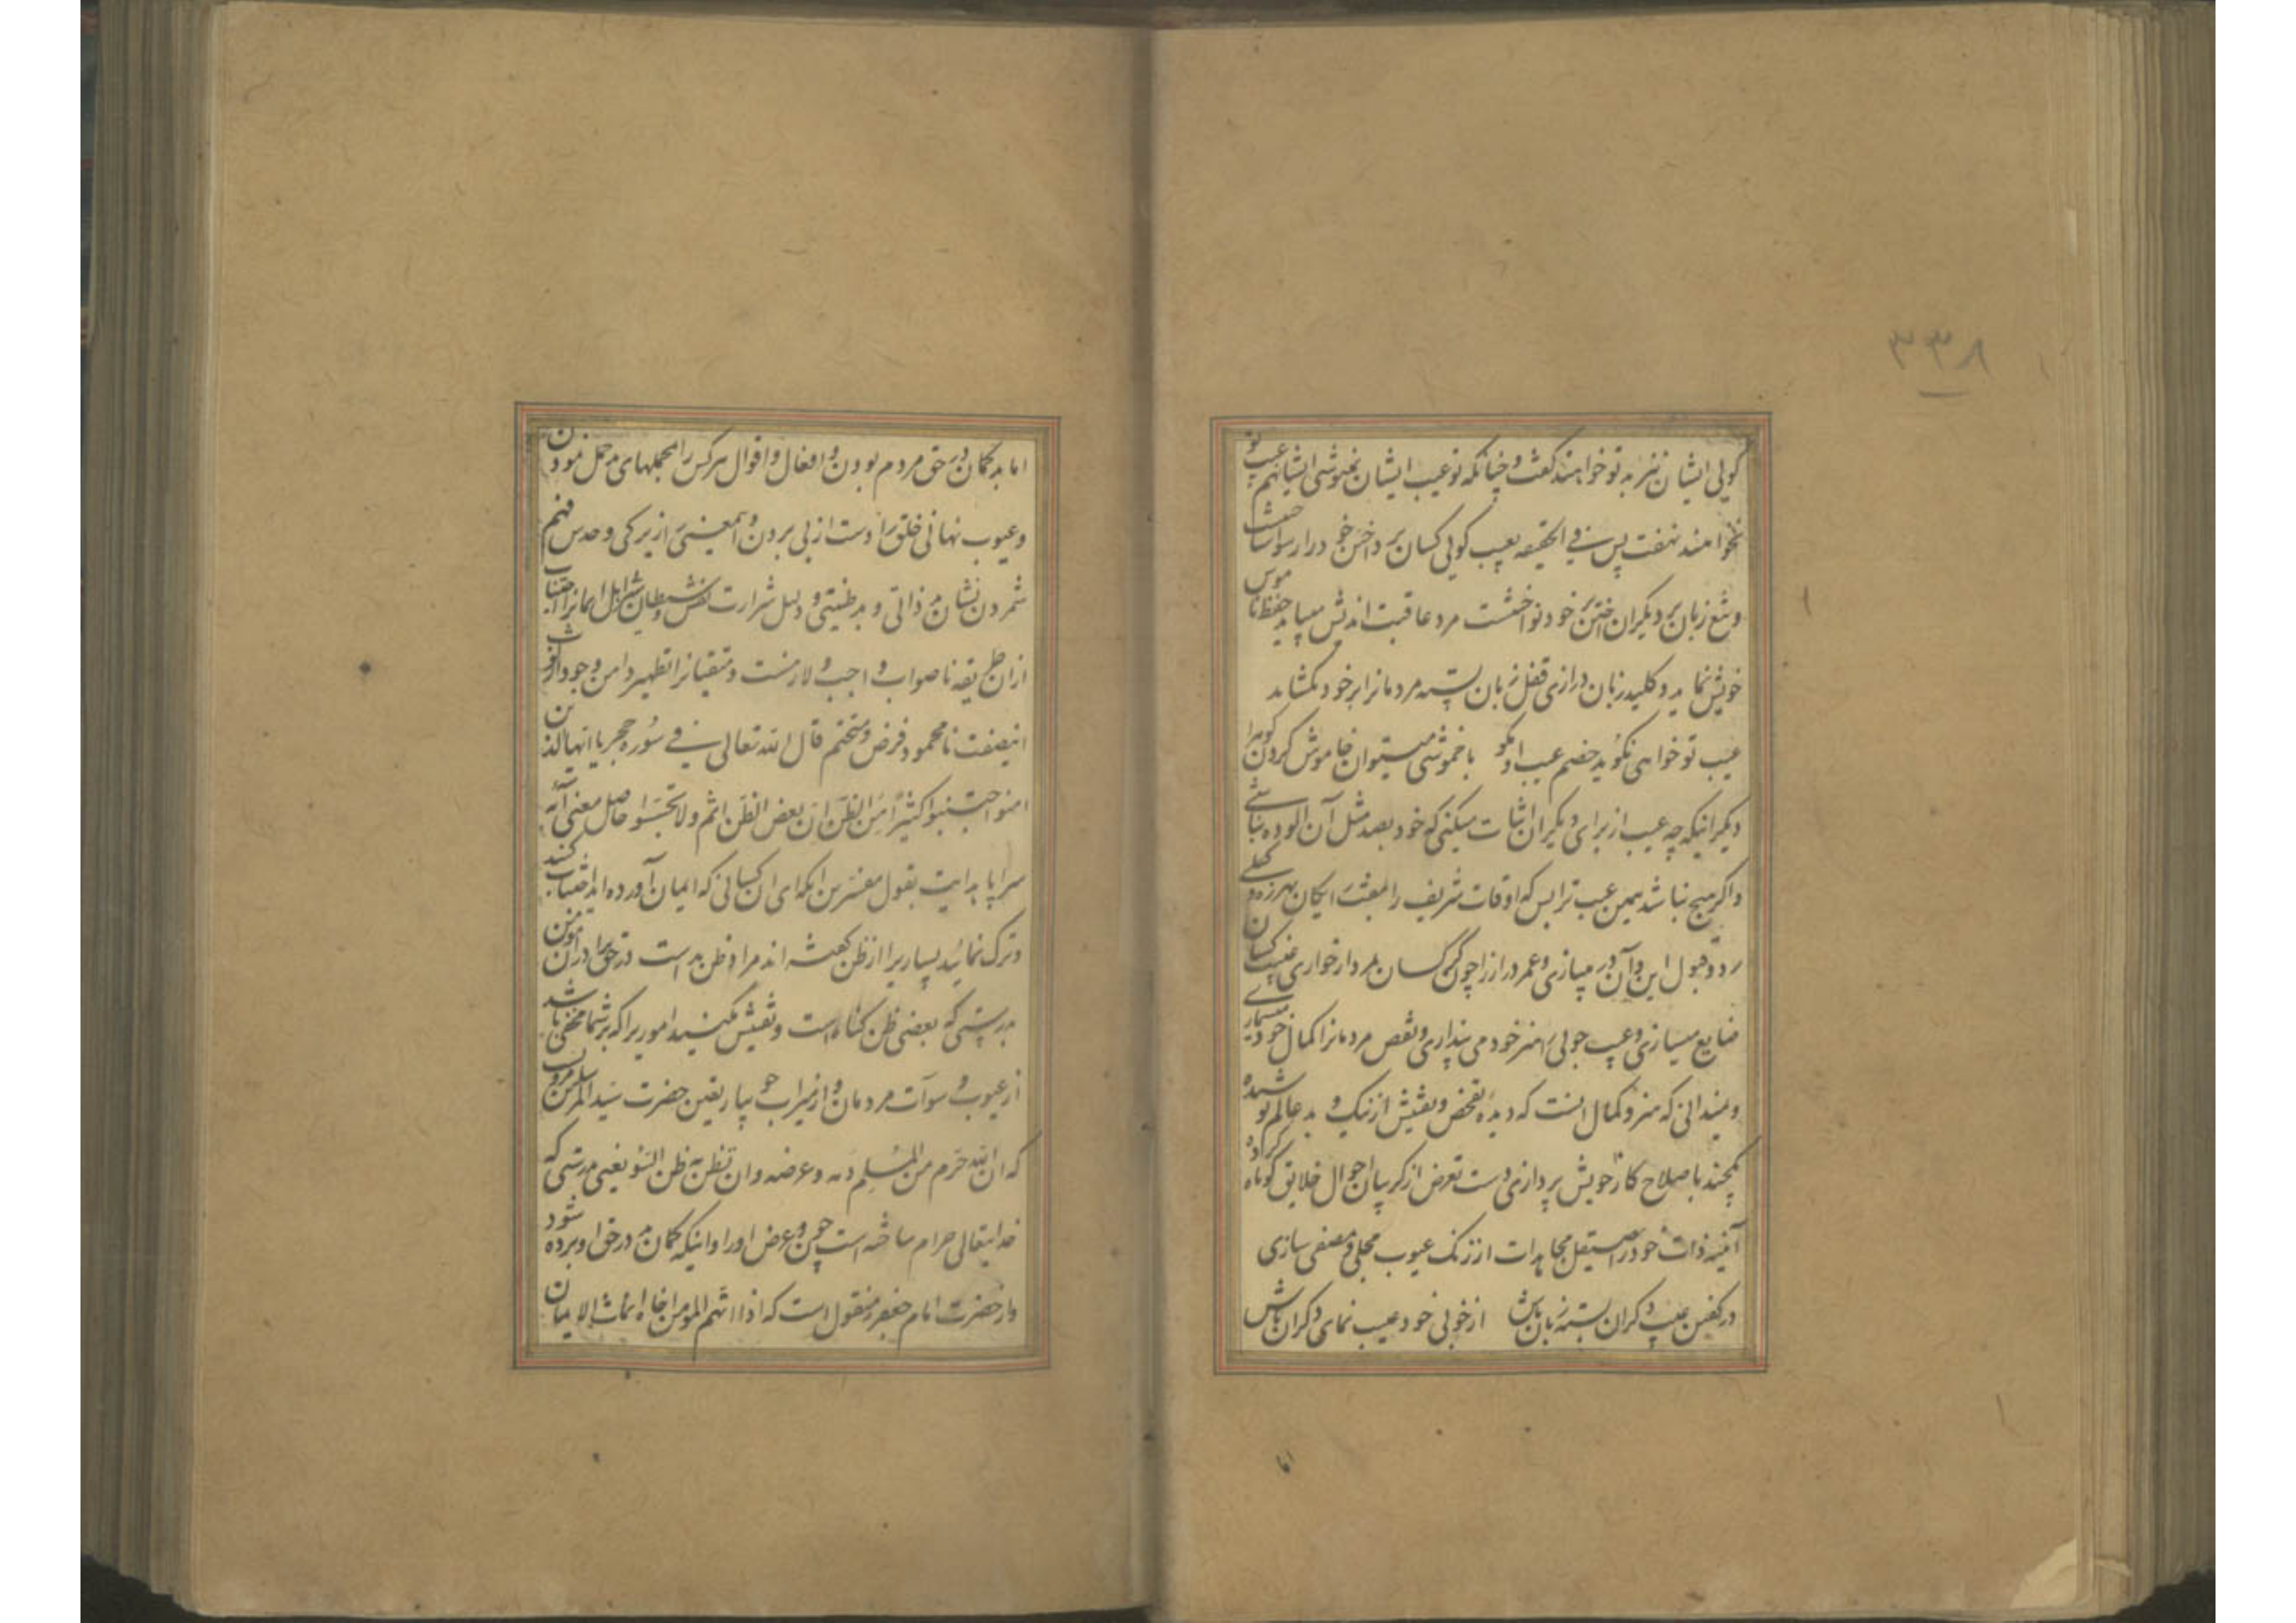 ۳۳۸
گویی ایشان نیز به تو خواهند گفت و چنانکه تو عیب ایشان نپوشی ایشانهم عیب تو
نخواهند نهفت پس فی الحقیقه بعیب گویی کسان پرداختن خود را رسوا ساختن
و تیغ زبان بر دیگران آختن بر خود نواختنست مرد عاقبت اندیش میباید حفظ ناموس
خویش نماید و کلید زبان درازی قفل زبان بسته مردمانرا بر خود نگشاید
عیب تو خواهی نگوید خصم عیب او مگو با خموشی میتوان خاموش کردن کوه را
دیگر اینکه چه عیب از برای دیگران اثبات میکنی که خود بصد مثل آن آلوده نباشی
و اگر هیچ نباشد همین عیب ترا بس که اوقات شریف را بعبث رایگان بهرزه
رد و قبول این و آن در میبازی و عمر دراز را چون کرکسان بمردار خواری غیبت کسان
ضایع میسازی و عیب جویی را هنر خود می پنداری و نقص مردمانرا کمال خود میشماری
و نمیدانی که هنر و کمال اینست که دیده تفحص و تفتیش از نیک و بد عالم پوشیده
یکچند باصلاح کار خویش پردازی و دست تعرض از گریبان احوال خلایق کوتاه کرده
آئینه ذات خود را بصیقل مجاهدات از زنک عیوب مجلی و مصفی سازی
در گفتن عیب دگران بسته زبان باش از خوبی خود عیب نمای دگران باش
اما
اما بد گمان در حق مردم بودن و افعال و اقوال هر کس را بمحملهای بد حمل نمودن
و عیوب نهانی خلق را دست از پی بردن و همعنی را زیرکی و حدس و فهم
شمردن نشان بد ذاتی و بد طینتی و دلیل شرارت نفس و شیطان اهل ایمانرا اجتناب
ازان طریقه ناصواب واجب و لازمست و متقیانرا تطهیر دامن وجود از لوث
اینصفت نامحمود فرض و متحتم قال الله تعالی فی سوره حجر یا ایها الذین
امنوا اجتنبوا کثیرًا من الظن ان بعض الظن اثم ولا تجسسوا حاصل معنی آیه
سراپا هدایت بقول مفسرین آنکه ای آن کسانی که ایمان آورده اید اجتناب کنید
و ترک نمائید بسیاریرا از ظن گفته اند مراد ظن بد است در حق برادر مؤمن
بدرستی که بعضی ظن گناه است و تفتیش مکنید اموریرا که بر شما مخفی باشد
از عیوب و سوآت مردمان و از میراب جویبار یقین حضرت سید المرسلین مرویست
که ان الله حرم من المسلم دمه و عرضه و ان تظن به ظن السوء یعنی بدرستی که
خدایتعالی حرام ساخته است خون و عرض او را و اینکه گمان بد در حق او برده شود
و از حضرت امام جعفر منقول است که اذا اتهم المؤمن اخاه انماث الایمان